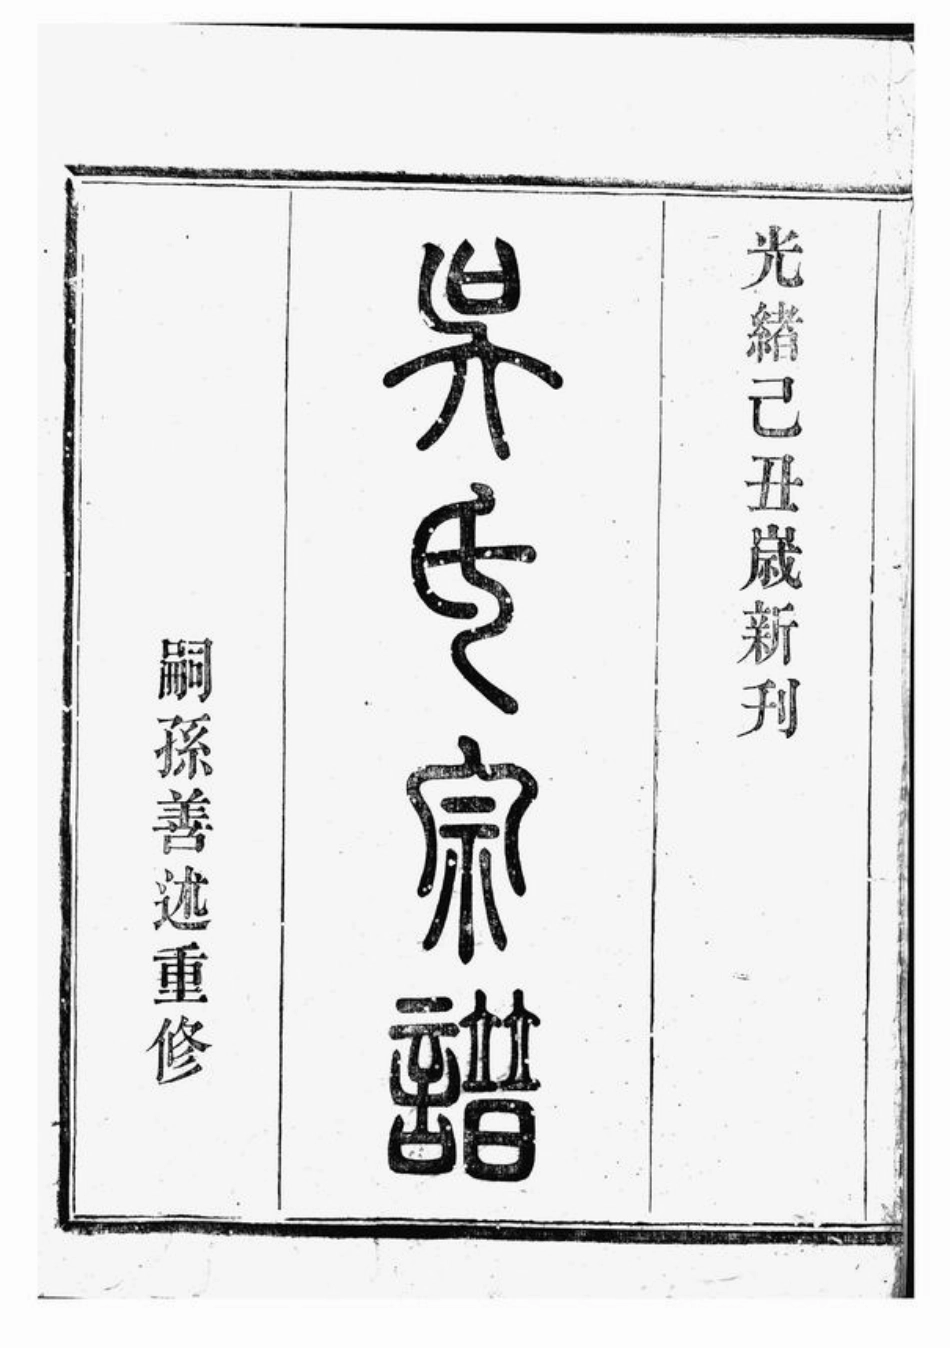 光緒己丑歲新刊
吳氏宗譜
嗣孫善述重修